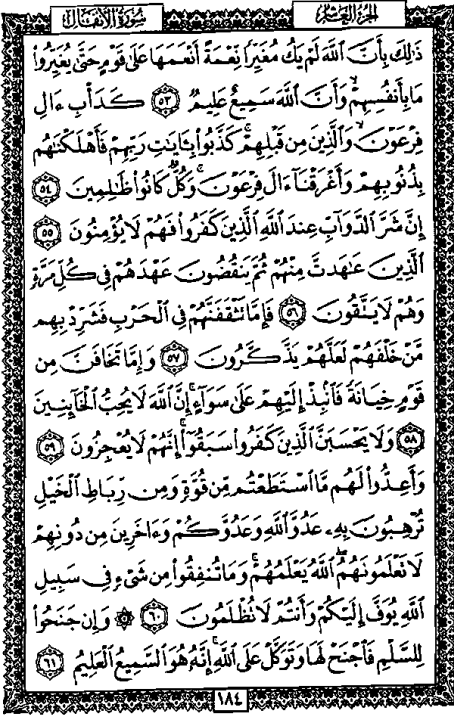 سُورَةُ الأَنفَالِ الجُزءُ العَاشِرُ
ذَٰلِكَ بِأَنَّ ٱللَّهَ لَمْ يَكُ مُغَيِّرًا نِّعْمَةً أَنْعَمَهَا عَلَىٰ قَوْمٍ حَتَّىٰ يُغَيِّرُوا۟
مَا بِأَنفُسِهِمْ ۙ وَأَنَّ ٱللَّهَ سَمِيعٌ عَلِيمٌ ٥٣ كَدَأْبِ ءَالِ
فِرْعَوْنَ ۙ وَٱلَّذِينَ مِن قَبْلِهِمْ ۚ كَذَّبُوا۟ بِـَٔايَٰتِ رَبِّهِمْ فَأَهْلَكْنَٰهُم
بِذُنُوبِهِمْ وَأَغْرَقْنَآ ءَالَ فِرْعَوْنَ ۚ وَكُلٌّ كَانُوا۟ ظَٰلِمِينَ ٥٤
إِنَّ شَرَّ ٱلدَّوَآبِّ عِندَ ٱللَّهِ ٱلَّذِينَ كَفَرُوا۟ فَهُمْ لَا يُؤْمِنُونَ ٥٥
ٱلَّذِينَ عَٰهَدتَّ مِنْهُمْ ثُمَّ يَنقُضُونَ عَهْدَهُمْ فِى كُلِّ مَرَّةٍ
وَهُمْ لَا يَتَّقُونَ ٥٦ فَإِمَّا تَثْقَفَنَّهُمْ فِى ٱلْحَرْبِ فَشَرِّدْ بِهِم
مَّنْ خَلْفَهُمْ لَعَلَّهُمْ يَذَّكَّرُونَ ٥٧ وَإِمَّا تَخَافَنَّ مِن
قَوْمٍ خِيَانَةً فَٱنۢبِذْ إِلَيْهِمْ عَلَىٰ سَوَآءٍ ۚ إِنَّ ٱللَّهَ لَا يُحِبُّ ٱلْخَآئِنِينَ
٥٨ وَلَا يَحْسَبَنَّ ٱلَّذِينَ كَفَرُوا۟ سَبَقُوٓا۟ ۚ إِنَّهُمْ لَا يُعْجِزُونَ ٥٩
وَأَعِدُّوا۟ لَهُم مَّا ٱسْتَطَعْتُم مِّن قُوَّةٍ وَمِن رِّبَاطِ ٱلْخَيْلِ
تُرْهِبُونَ بِهِۦ عَدُوَّ ٱللَّهِ وَعَدُوَّكُمْ وَءَاخَرِينَ مِن دُونِهِمْ
لَا تَعْلَمُونَهُمُ ٱللَّهُ يَعْلَمُهُمْ ۚ وَمَا تُنفِقُوا۟ مِن شَىْءٍ فِى سَبِيلِ
ٱللَّهِ يُوَفَّ إِلَيْكُمْ وَأَنتُمْ لَا تُظْلَمُونَ ٦٠ ۞ وَإِن جَنَحُوا۟
لِلسَّلْمِ فَٱجْنَحْ لَهَا وَتَوَكَّلْ عَلَى ٱللَّهِ ۚ إِنَّهُۥ هُوَ ٱلسَّمِيعُ ٱلْعَلِيمُ ٦١
١٨٤